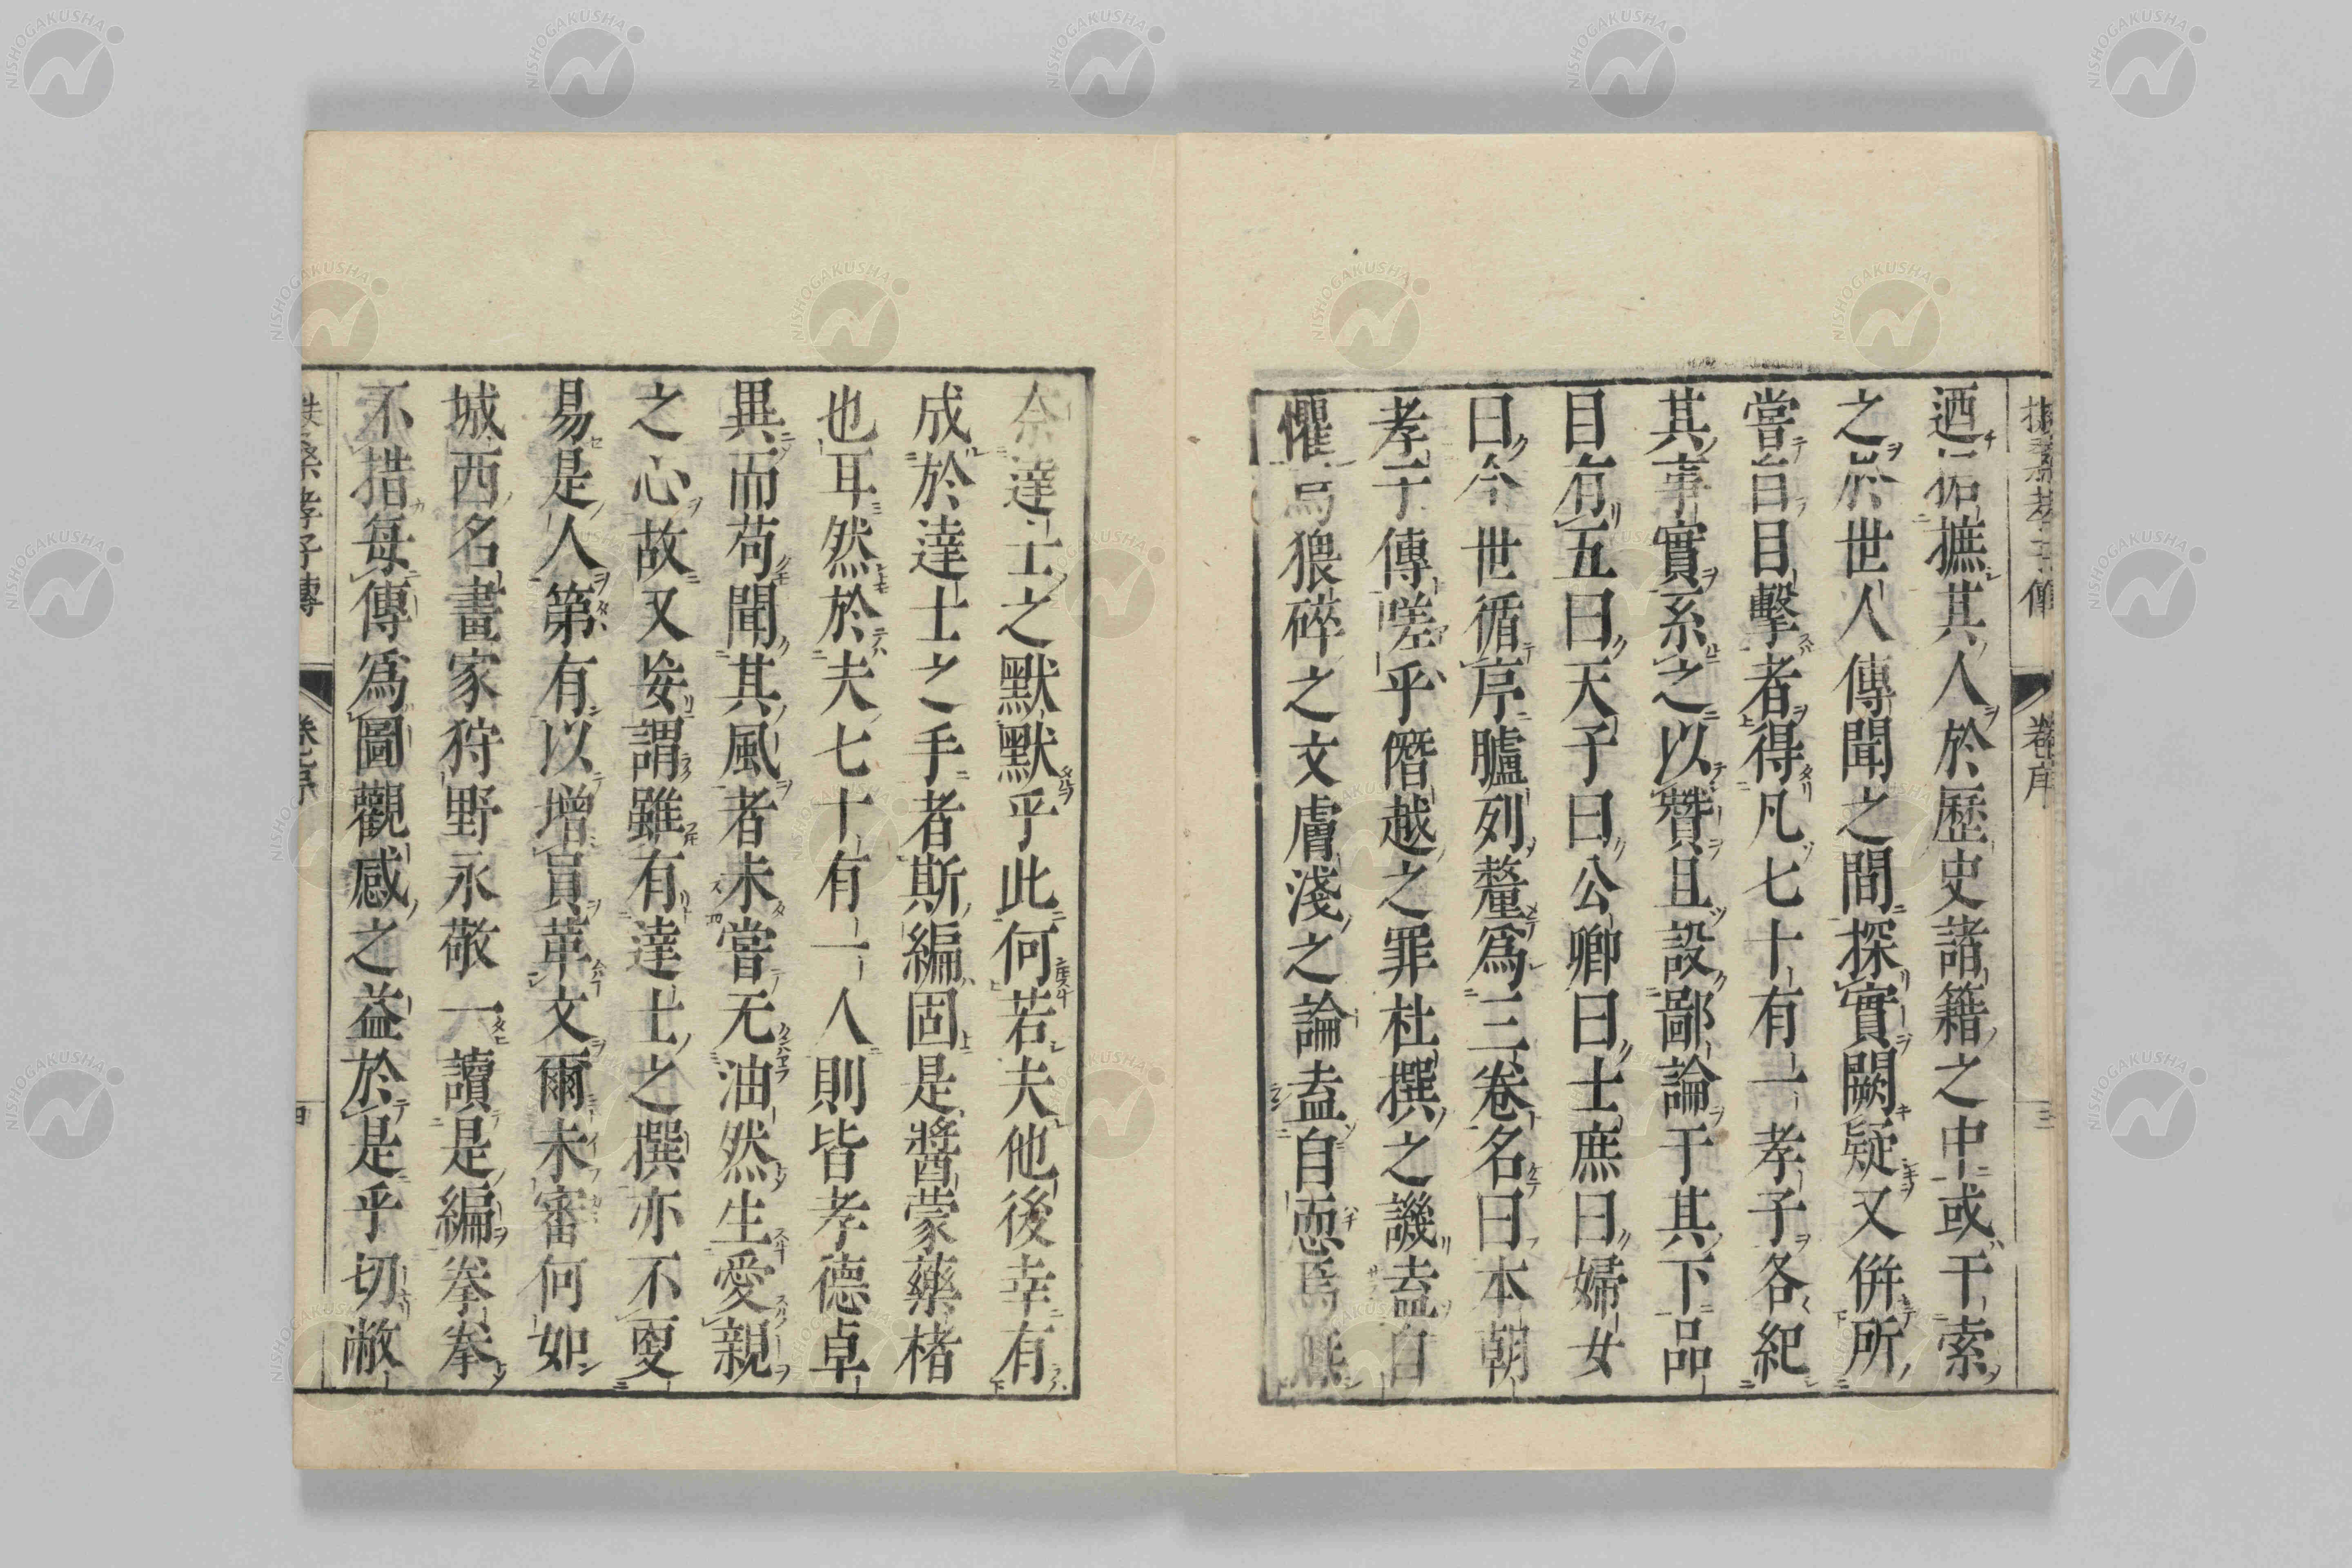 迺拓摭其人於歷史諸籍之中或干索
之於世人傳聞之間探實闕疑又併所
嘗自目擊者得凡七十有一孝子各紀
其事實系之以贊且設鄙論于其下品
目有五曰天子曰公卿曰士庶曰婦女
曰今世循序臚列釐爲三卷名曰本朝
孝子傳嗟乎僭越之罪杜撰之譏盍自
懼焉猥碎之文膚淺之論盍自恧焉無
奈達士之默默乎此何若夫他後幸有
成於達士之手者斯編固是醬蒙藥楮
也耳然於夫七十有一人則皆孝德卓
異而苟聞其風者未嘗无油然生愛親
之心故又妄謂雖有達士之撰亦不更
易是人第有以增員革文爾未審何如
城西名畫家狩野永敬一讀是編拳拳
不措每傳爲圖觀感之益於是乎切敝